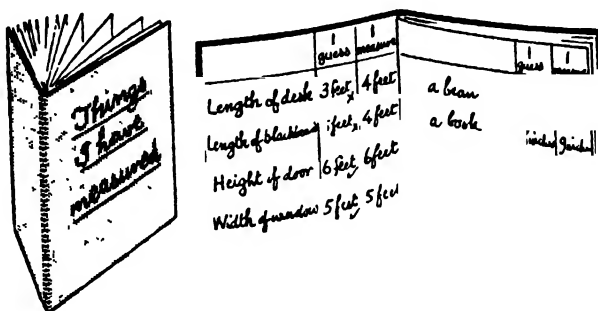 Things
I have
measured
I guess I measure
Length of desk 3 feet 4 feet
Length of blackboard feet 4 feet
Height of door 6 feet 6 feet
Width of window 5 feet 5 feet
I guess I
a bean
a book inches 9 inches